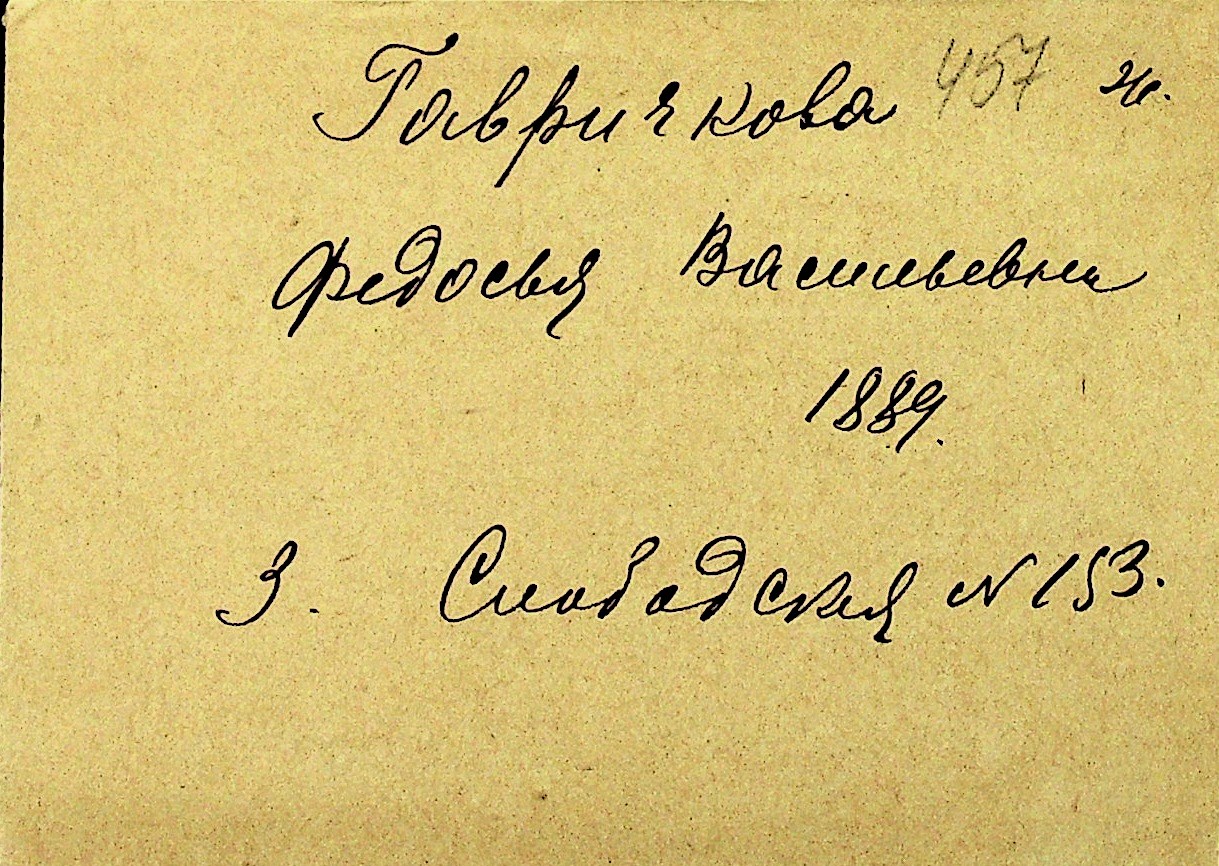 Гавричкова 457 ж.
Федосья Васильевна
1889.
3. Слободская N 153.